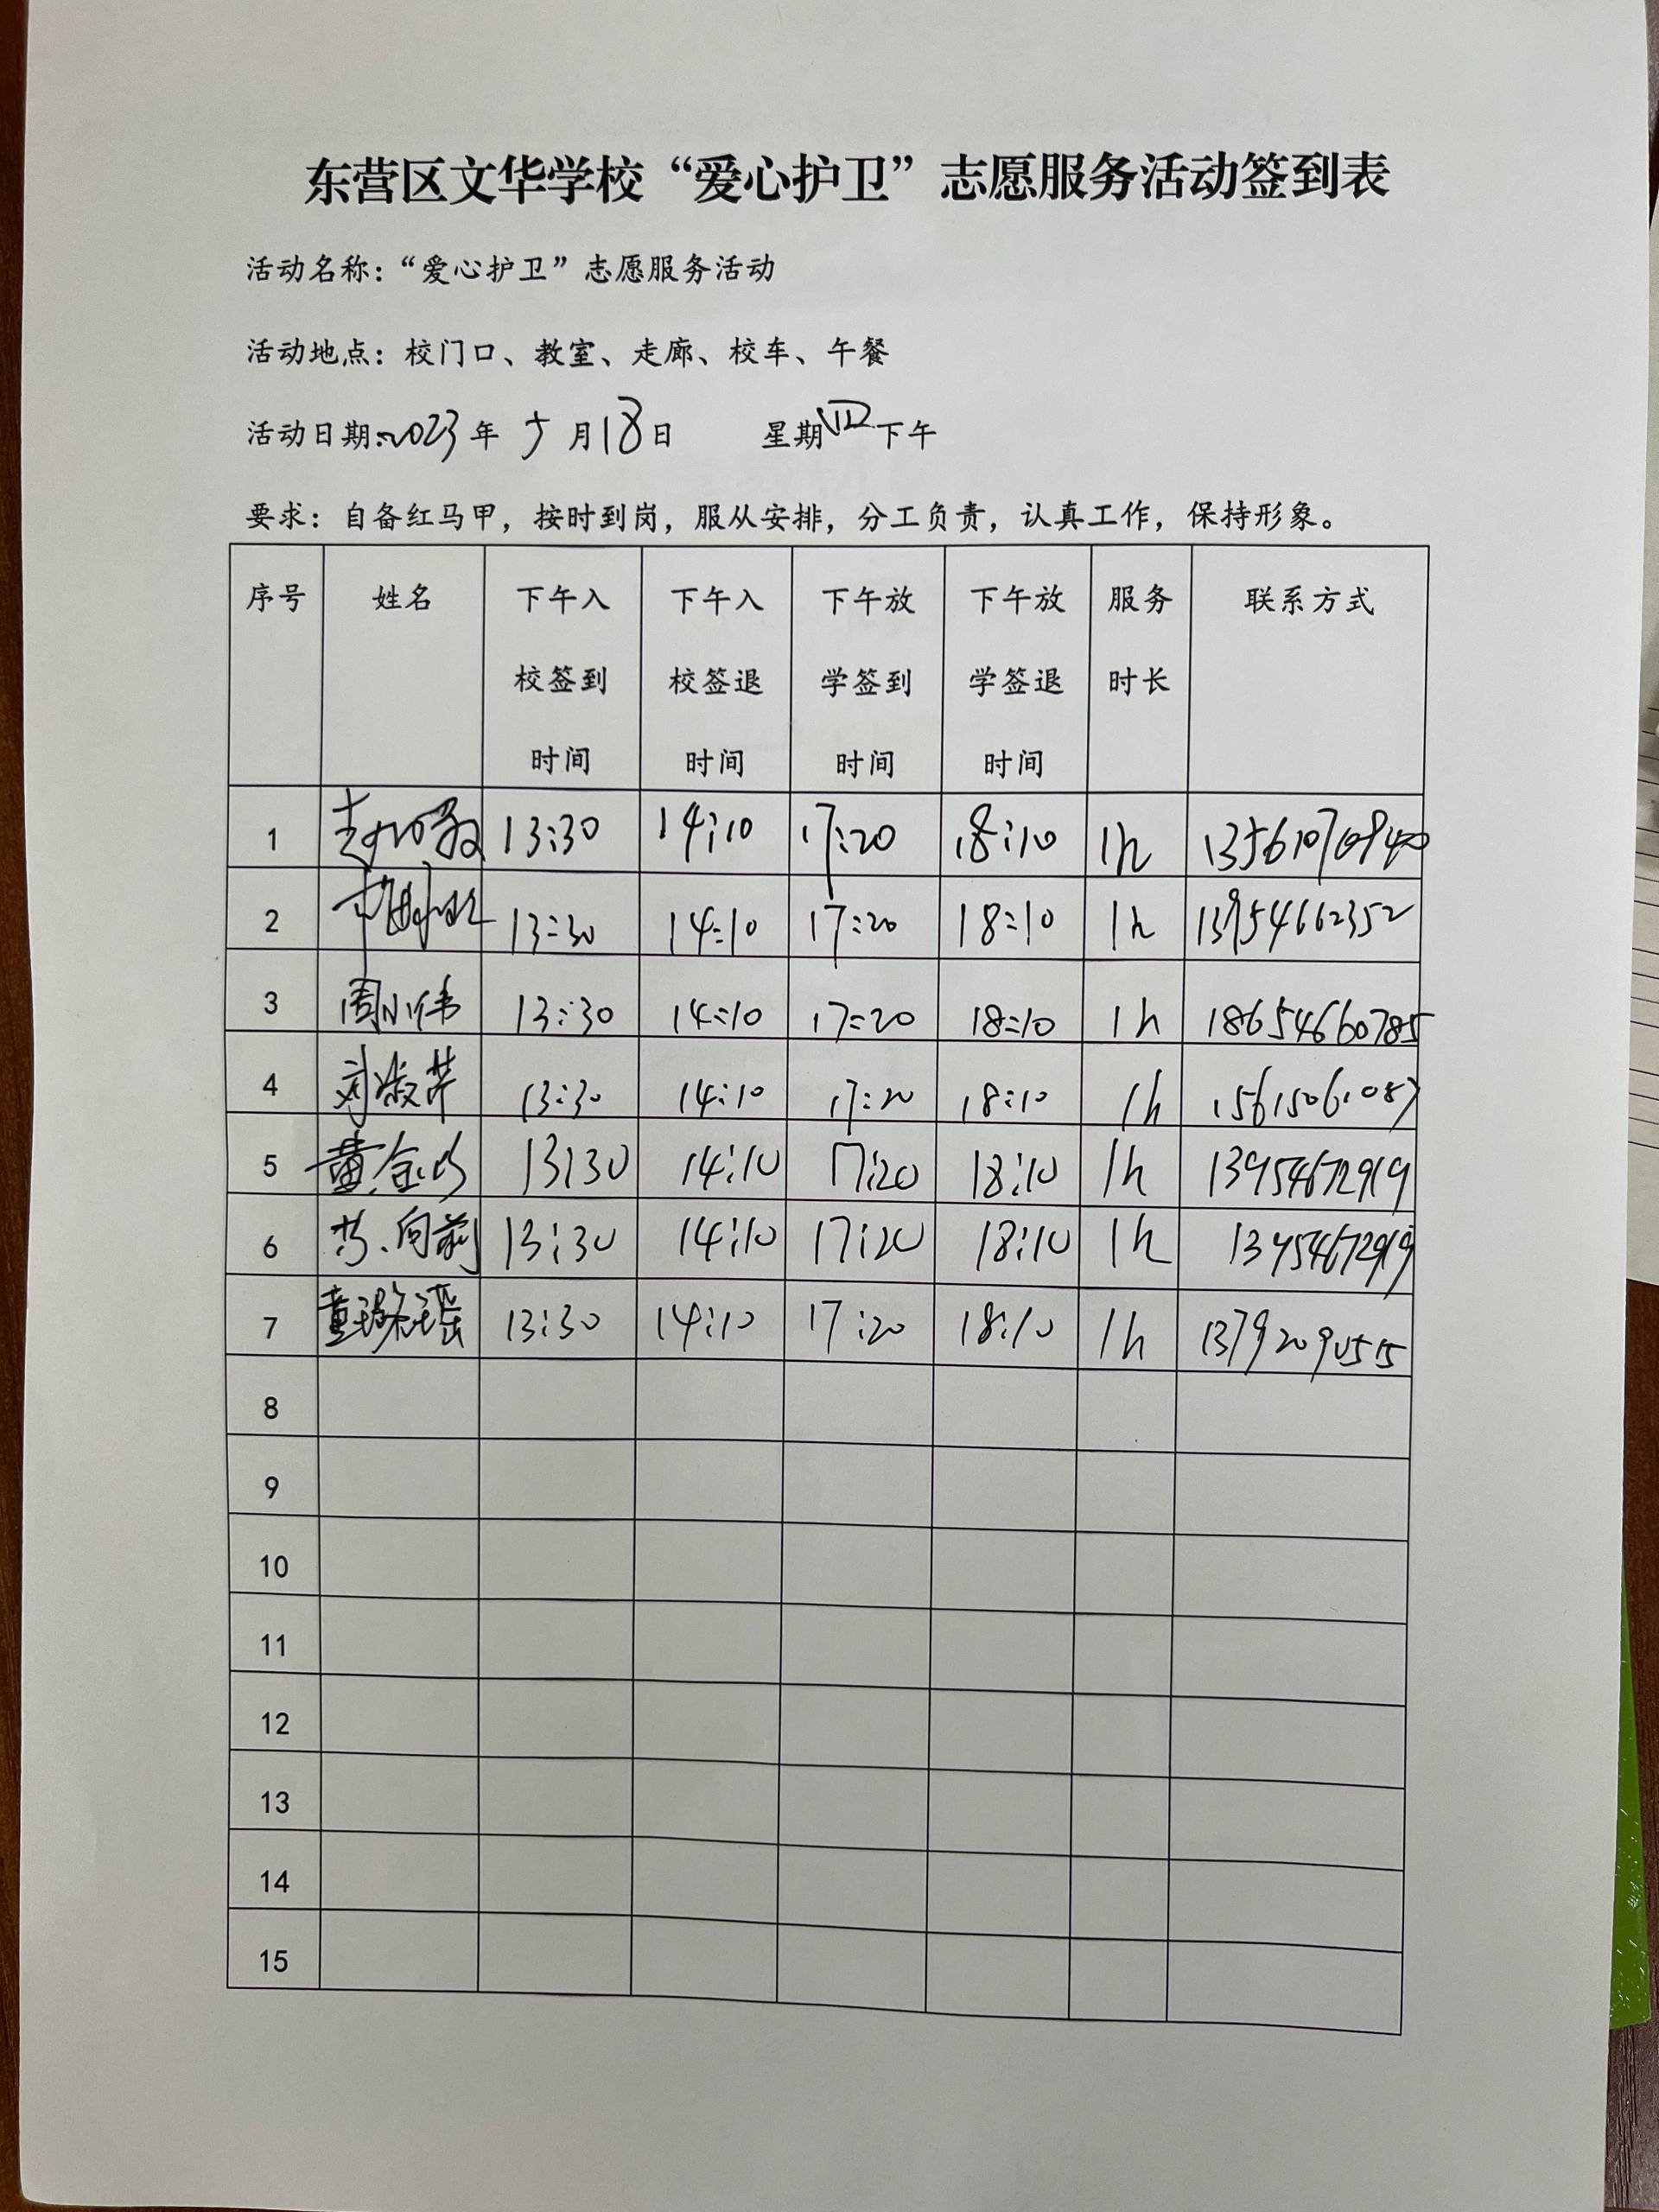 东营区文华学校“爱心护卫”志愿服务活动签到表
活动名称：“爱心护卫”志愿服务活动
活动地点：校门口、教室、走廊、校车、午餐
活动日期：2023年 5月18日 星期四下午
要求：自备红马甲，按时到岗，服从安排，分工负责，认真工作，保持形象。
序号 姓名 下午入校签到时间 下午入校签退时间 下午放学签到时间 下午放学签退时间 服务时长 联系方式
1 13:30 14:10 17:20 18:10 1h
2 13:30 14:10 17:20 18:10 1h 13954662352
3 周小伟 13:30 14:10 17:20 18:10 1h 18654660785
4 刘淑芹 13:30 14:10 17:20 18:10 1h 15615061087
5 13:30 14:10 17:20 18:10 1h 13954672919
6 13:30 14:10 17:20 18:10 1h 13954672919
7 13:30 14:10 17:20 18:10 1h 13792090515
8
9
10
11
12
13
14
15